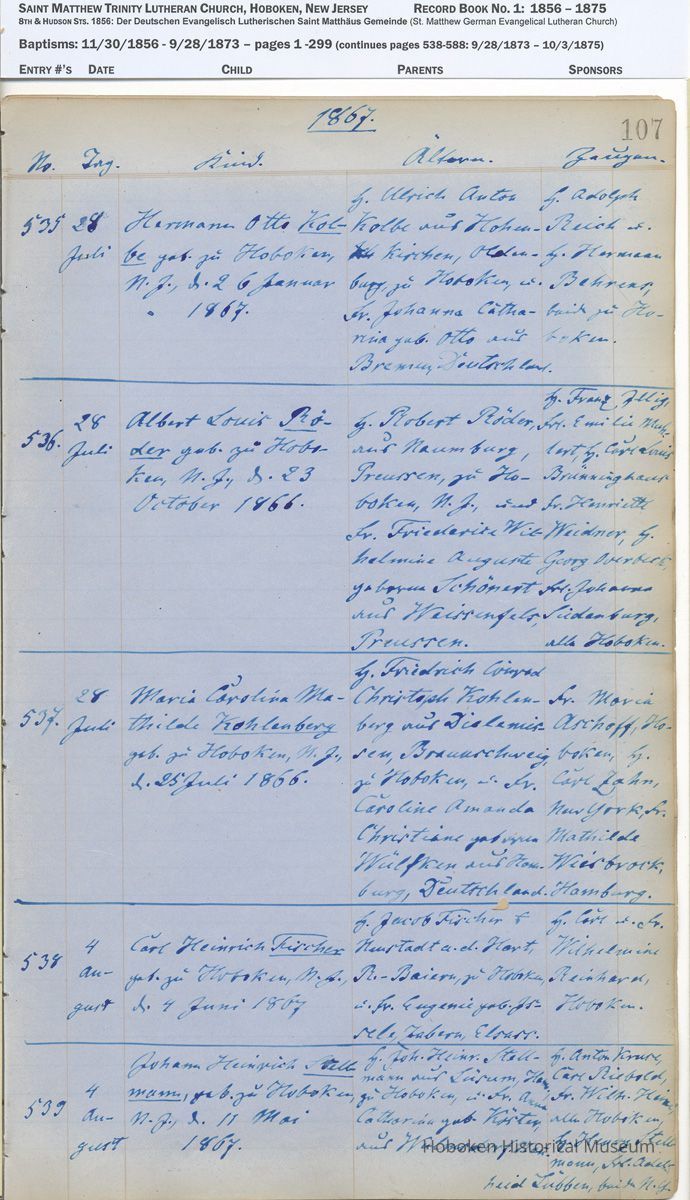 SAINT MATTHEW TRINITY LUTHERAN CHURCH, HOBOKEN, NEW JERSEY RECORD BOOK NO. 1: 1856 – 1875
8TH & HUDSON STS. 1856: Der Deutschen Evangelisch Lutherischen Saint Matthäus Gemeinde (St. Matthew German Evangelical Lutheran Church)
Baptisms: 11/30/1856 - 9/28/1873 – pages 1 -299 (continues pages 538-588: 9/28/1873 – 10/3/1875)
ENTRY #'S DATE CHILD PARENTS SPONSORS
1867.
107
No. Tag. Kind. Ältern. Zeugen.
535
28
Juli
Hermann Otto Kol-
be geb. zu Hoboken,
N. J., d. 26 Januar
1867.
H. Ulrich Anton
Kolbe aus Hohen-
Kirchen, Olden-
burg, zu Hoboken, u.
Fr. Johanna Catha-
rina geb. Otto aus
Bremen, Deutschland.
H. Adolph
Reich u.
H. Hermann
Behrens,
beide zu Ho-
boken.
536.
28
Juli
Albert Louis Rö-
der geb. zu Hobo-
ken, N. J., d. 23
October 1866.
H. Robert Röder,
aus Naumburg,
Preussen, zu Ho-
boken, N. J., und
Fr. Friederike Wil-
helmine Auguste
geborne Schönert
aus Weissenfels,
Preussen.
H. Franz
Frl. Emilie
H. Carl Louis
Brünninghaus
Fr. Henriette
Weidner, H.
Georg Overbeck,
Frl. Johanna
Siedenburg,
alle Hoboken.
537.
28
Juli
Maria Carolina Ma-
thilde Kohlenberg
geb. zu Hoboken, N. J.,
d. 25 Juli 1866.
H. Friedrich Conrad
Christoph Kohlen-
berg aus
sen, Braunschweig
zu Hoboken, u. Fr.
Caroline Amanda
Christiane geborne
Wülfken aus Ham-
burg, Deutschland.
Fr. Maria
Aschoff, Ho-
boken, H.
Carl Zahn,
New York, Fr.
Mathilde
Weisbrock,
Hamburg.
538
4
Au-
gust
Carl Heinrich Fischer
geb. zu Hoboken, N. J.,
d. 4 Juni 1867
H. Jacob Fischer
Neustadt a. d. Hart,
R.-Baiern, zu Hoboken,
u. Fr. Eugenie geb. Is-
sele, Zabern, Elsass.
H. Carl u. Fr.
Wilhelmine
Reinhard,
Hoboken.
539
4
Au-
gust
Johann Heinrich Stell-
mann, geb. zu Hoboken,
N. J., d. 11 Mai
1867.
H. Joh. Heinr. Stell-
mann aus
zu Hoboken, u. Fr. Anna
Catharina geb. Köster,
aus
H. Anton Kruse,
Carl Riebold,
Fr. Wilh.
alle Hoboken,
H. Henry Stell-
mann, Frl. Adel-
heid Lübben, beide N. Y.
Hoboken Historical Museum